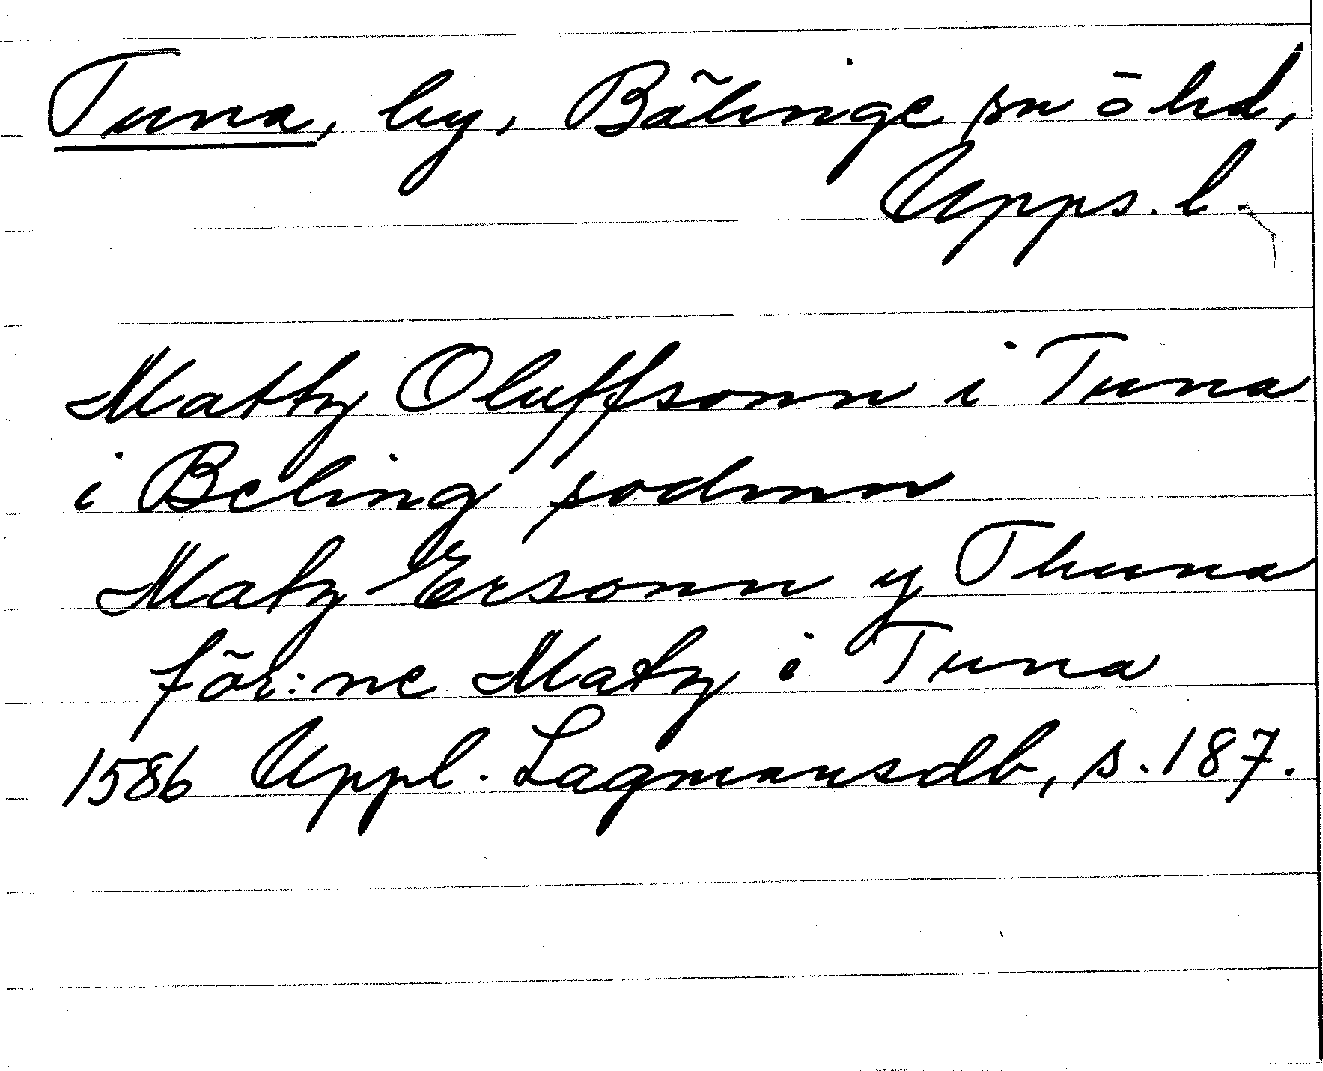 Tuna, by, Bälinge sn o hd,
Upps. l.
Mattz Oluffsonn i Tuna
i Beling sodnnn
Matz Ersonn y Thuna
för:ne Matz i Tuna
1586 Uppl. Lagmansdb, s. 187.